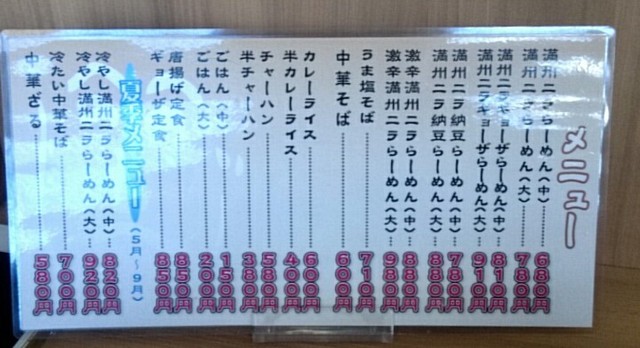 メニュー
満州ニラらーめん（中）…680円
満州ニラらーめん（大）…780円
満州ニラギョーザらーめん（中）810円
満州ニラギョーザらーめん（大）910円
満州ニラ納豆らーめん（中）780円
満州ニラ納豆らーめん（大）880円
激辛満州ニラらーめん（中）880円
激辛満州ニラらーめん（大）980円
うま塩そば…710円
中華そば…600円
カレーライス…600円
半カレーライス…400円
チャーハン…580円
半チャーハン…380円
ごはん（中）…150円
ごはん（大）…200円
唐揚げ定食…850円
ギョーザ定食…850円
夏季メニュー（5月〜9月）
冷やし満州ニラらーめん（中）…820円
冷やし満州ニラらーめん（大）…920円
冷たい中華そば…700円
中華ざる…580円